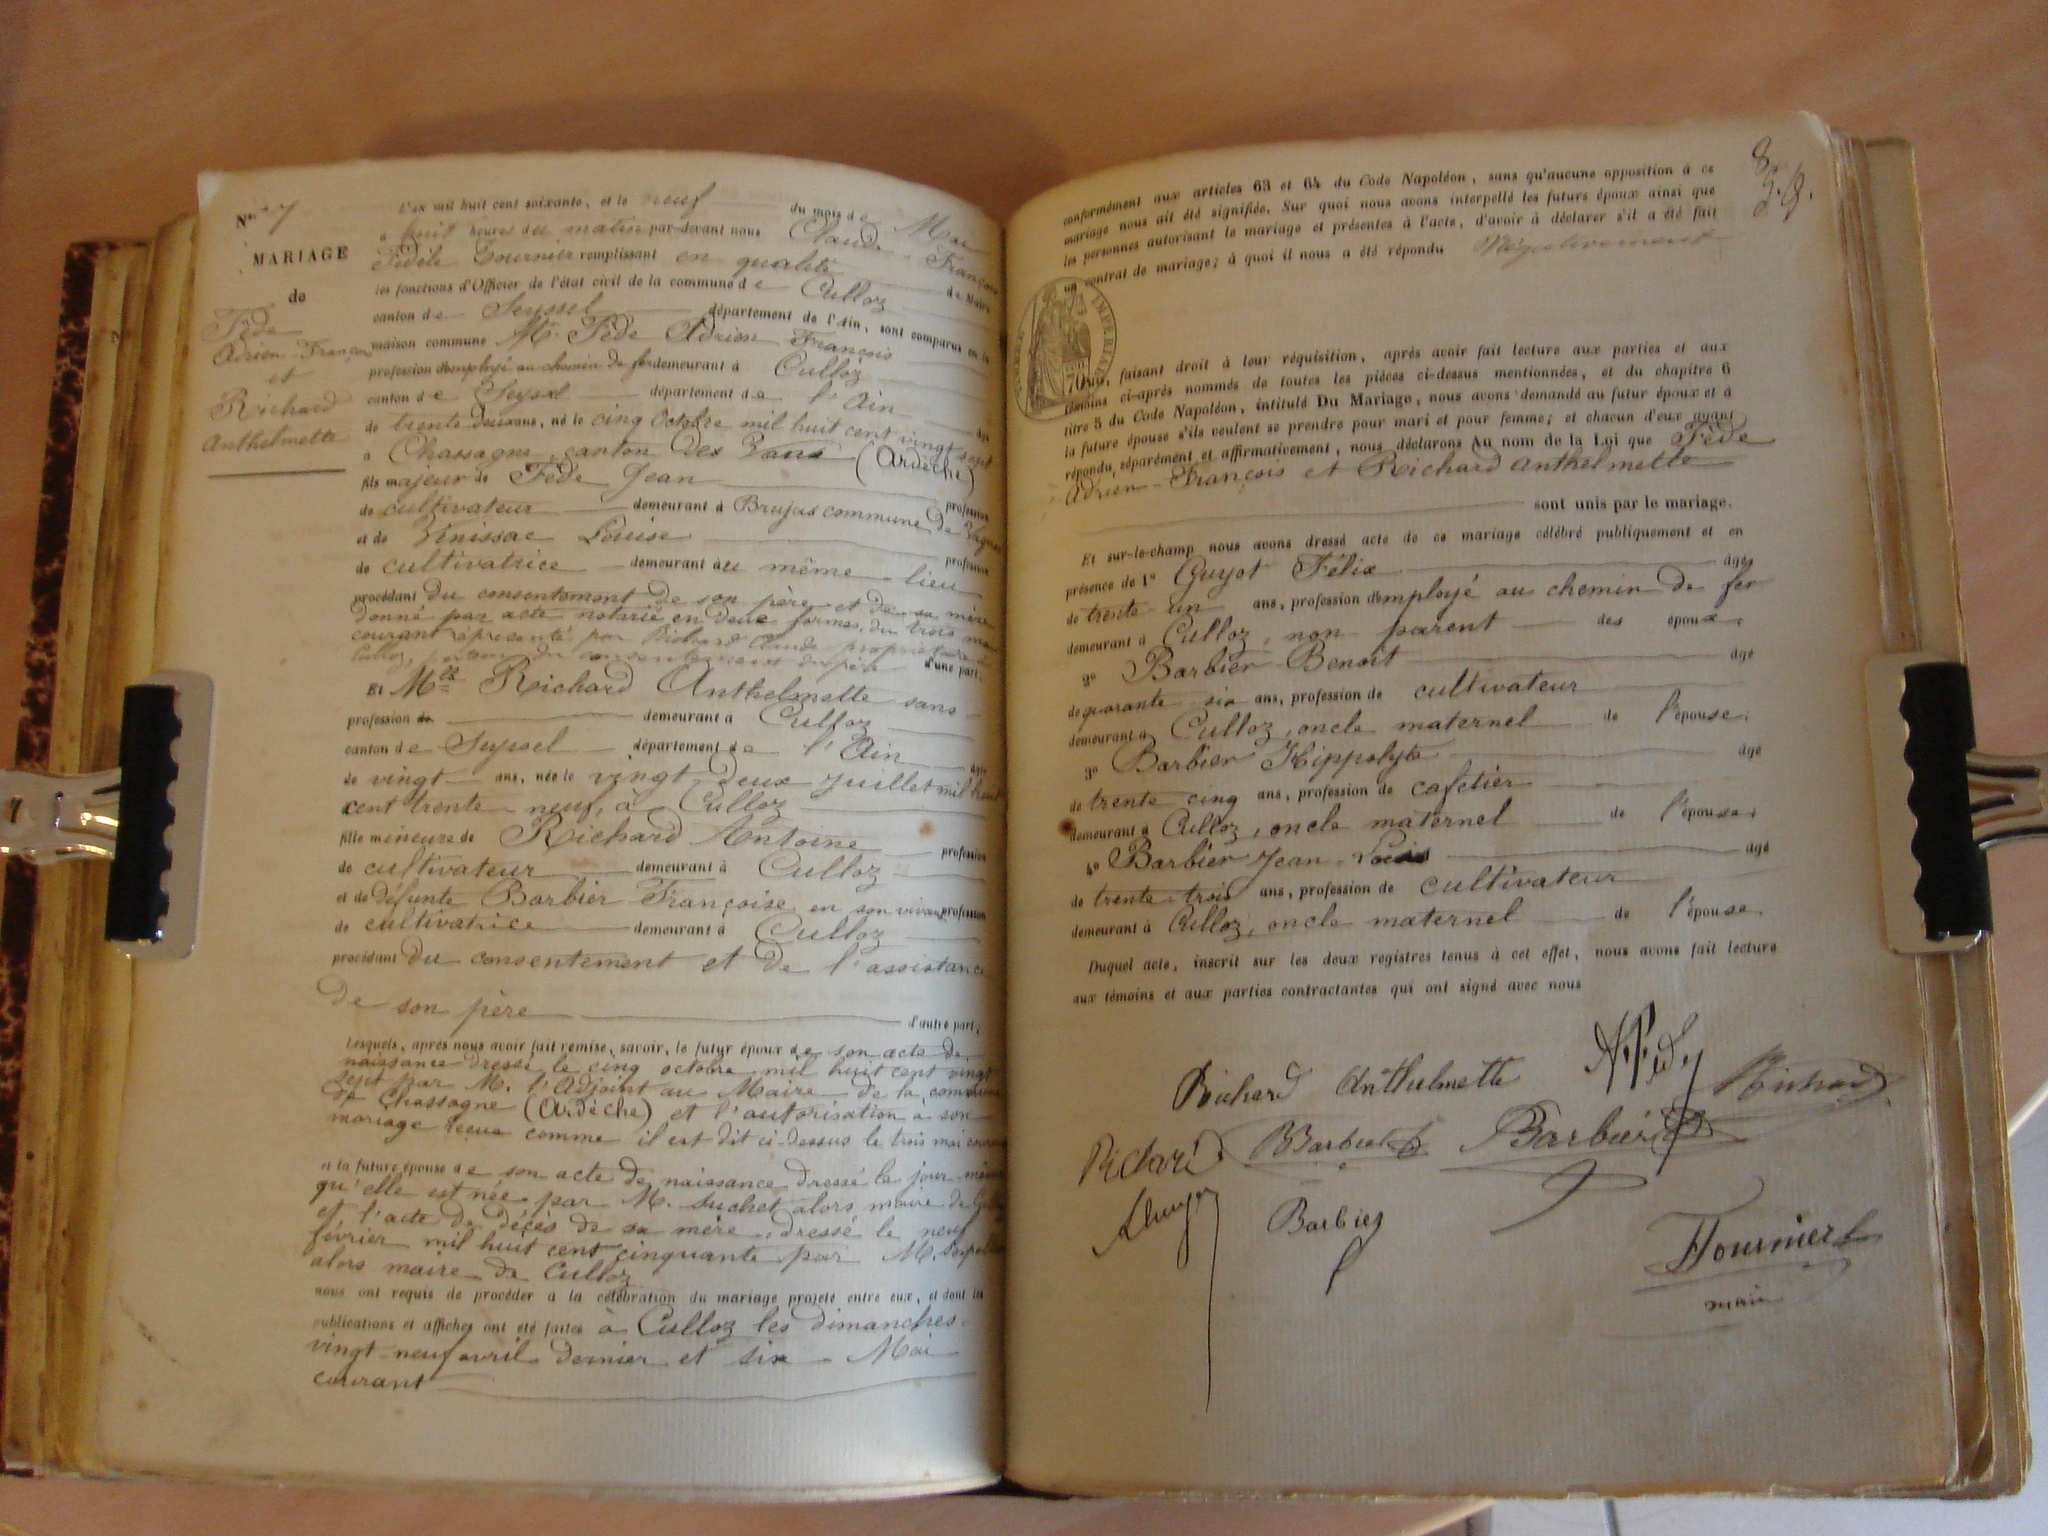 N.° 7
MARIAGE
de
Fède
Adrien-François
et
Richard
Anthelmette
L'an mil huit cent soixante, et le neuf du mois de Mai
à huit heures du matin par-devant nous Claude-François
Fidèle Tournier remplissant en qualité de Maire
les fonctions d'Officier de l'état civil de la commune de Culloz
canton de Seyssel département de l'Ain, sont comparus en la
maison commune Mr Fède Adrien François
profession d'employé au chemin de fer demeurant à Culloz
canton de Seyssel département de l'Ain âgé
de trente deux ans, né le cinq Octobre mil huit cent vingt sept
à Chassagne, canton des Vans (Ardèche)
fils majeur de Fède Jean profession
de cultivateur demeurant à Brujas commune de
et de Vinissac Louise profession
de cultivatrice demeurant au même lieu
procédant du consentement de son père et de sa mère
donné par acte notarié en deux formes, du trois mai
courant représenté par Richard Claude propriétaire à
Culloz, du consentement du père d'une part.
Et Melle Richard Anthelmette sans
profession de demeurant à Culloz
canton de Seyssel département de l'Ain âgée
de vingt ans, née le vingt-deux juillet mil huit
cent trente-neuf, à Culloz
fille mineure de Richard Antoine profession
de cultivateur demeurant à Culloz
et de défunte Barbier Françoise en son vivant profession
de cultivatrice demeurant à Culloz
procédant du consentement et de l'assistance
de son père d'autre part.
Lesquels, après nous avoir fait remise, savoir, le futur époux de son acte de
naissance dressé le cinq octobre mil huit cent vingt
sept par M. l'Adjoint au Maire de la commune
de Chassagne (Ardèche) et l'autorisation à son
mariage reçue comme il est dit ci-dessus le trois mai courant
et la future épouse de son acte de naissance dressé le jour même
qu'elle est née par M. Suchet alors maire de Culloz
et l'acte de décès de sa mère, dressé le neuf
février mil huit cent cinquante par M.
alors maire de Culloz
nous ont requis de procéder à la célébration du mariage projeté entre eux, et dont les
publications et affiches ont été faites à Culloz les dimanches
vingt-neuf avril dernier et six Mai
courant
conformément aux articles 63 et 64 du Code Napoléon, sans qu'aucune opposition à ce
mariage nous ait été signifiée. Sur quoi nous avons interpellé les futurs époux ainsi que
les personnes autorisant le mariage et présentes à l'acte, d'avoir à déclarer s'il a été fait
un contrat de mariage; à quoi il nous a été répondu Négativement
IMPERIAL
Nous, faisant droit à leur réquisition, après avoir fait lecture aux parties et aux
témoins ci-après nommés de toutes les pièces ci-dessus mentionnées, et du chapitre 6
titre 5 du Code Napoléon, intitulé Du Mariage, nous avons demandé au futur époux et à
la future épouse s'ils veulent se prendre pour mari et pour femme; et chacun d'eux ayant
répondu, séparément et affirmativement, nous déclarons Au nom de la Loi que Fède
Adrien-François et Richard Anthelmette
sont unis par le mariage.
Et sur-le-champ nous avons dressé acte de ce mariage célébré publiquement et en
présence de 1° Guyot Félix âgé
de trente-un ans, profession d'employé au chemin de fer
demeurant à Culloz, non parent des époux.
2° Barbier Benoit âgé
de quarante-six ans, profession de cultivateur
demeurant à Culloz, oncle maternel de l'épouse.
3° Barbier Hippolyte âgé
de trente cinq ans, profession de cafetier
demeurant à Culloz, oncle maternel de l'épouse.
4° Barbier Jean-Louis âgé
de trente-trois ans, profession de cultivateur
demeurant à Culloz, oncle maternel de l'épouse.
Duquel acte, inscrit sur les deux registres tenus à cet effet, nous avons fait lecture
aux témoins et aux parties contractantes qui ont signé avec nous
Richard Anthelmette A. F. Fède Richard
Richard BBarbier Barbier
Barbier
Tournier
maire